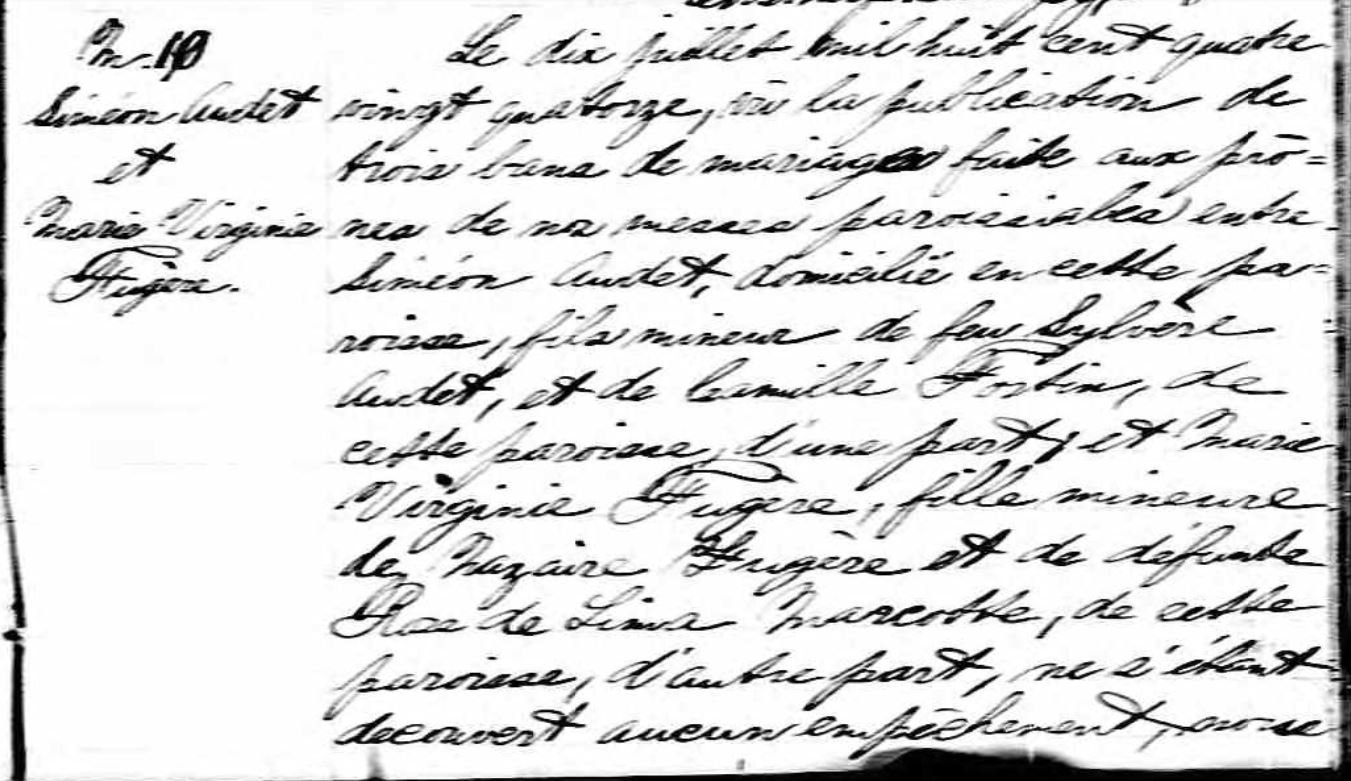 M. 10
Siméon Audet
et
Marie Virginie
Fugère.
Le dix juillet mil huit cent quatre
vingt quatorze, vu la publication de
trois bans de mariage faite aux prô=
nes de nos messes paroissiales entre
Siméon Audet, domicilié en cette pa=
roisse, fils mineur de feu Sylvère
Audet, et de Camille Fortin, de
cette paroisse, d'une part; et Marie
Virginie Fugère, fille mineure
de Nazaire Fugère et de défunte
Rose de Lima Marcotte, de cette
paroisse, d'autre part, ne s'étant
découvert aucun empêchement, nous